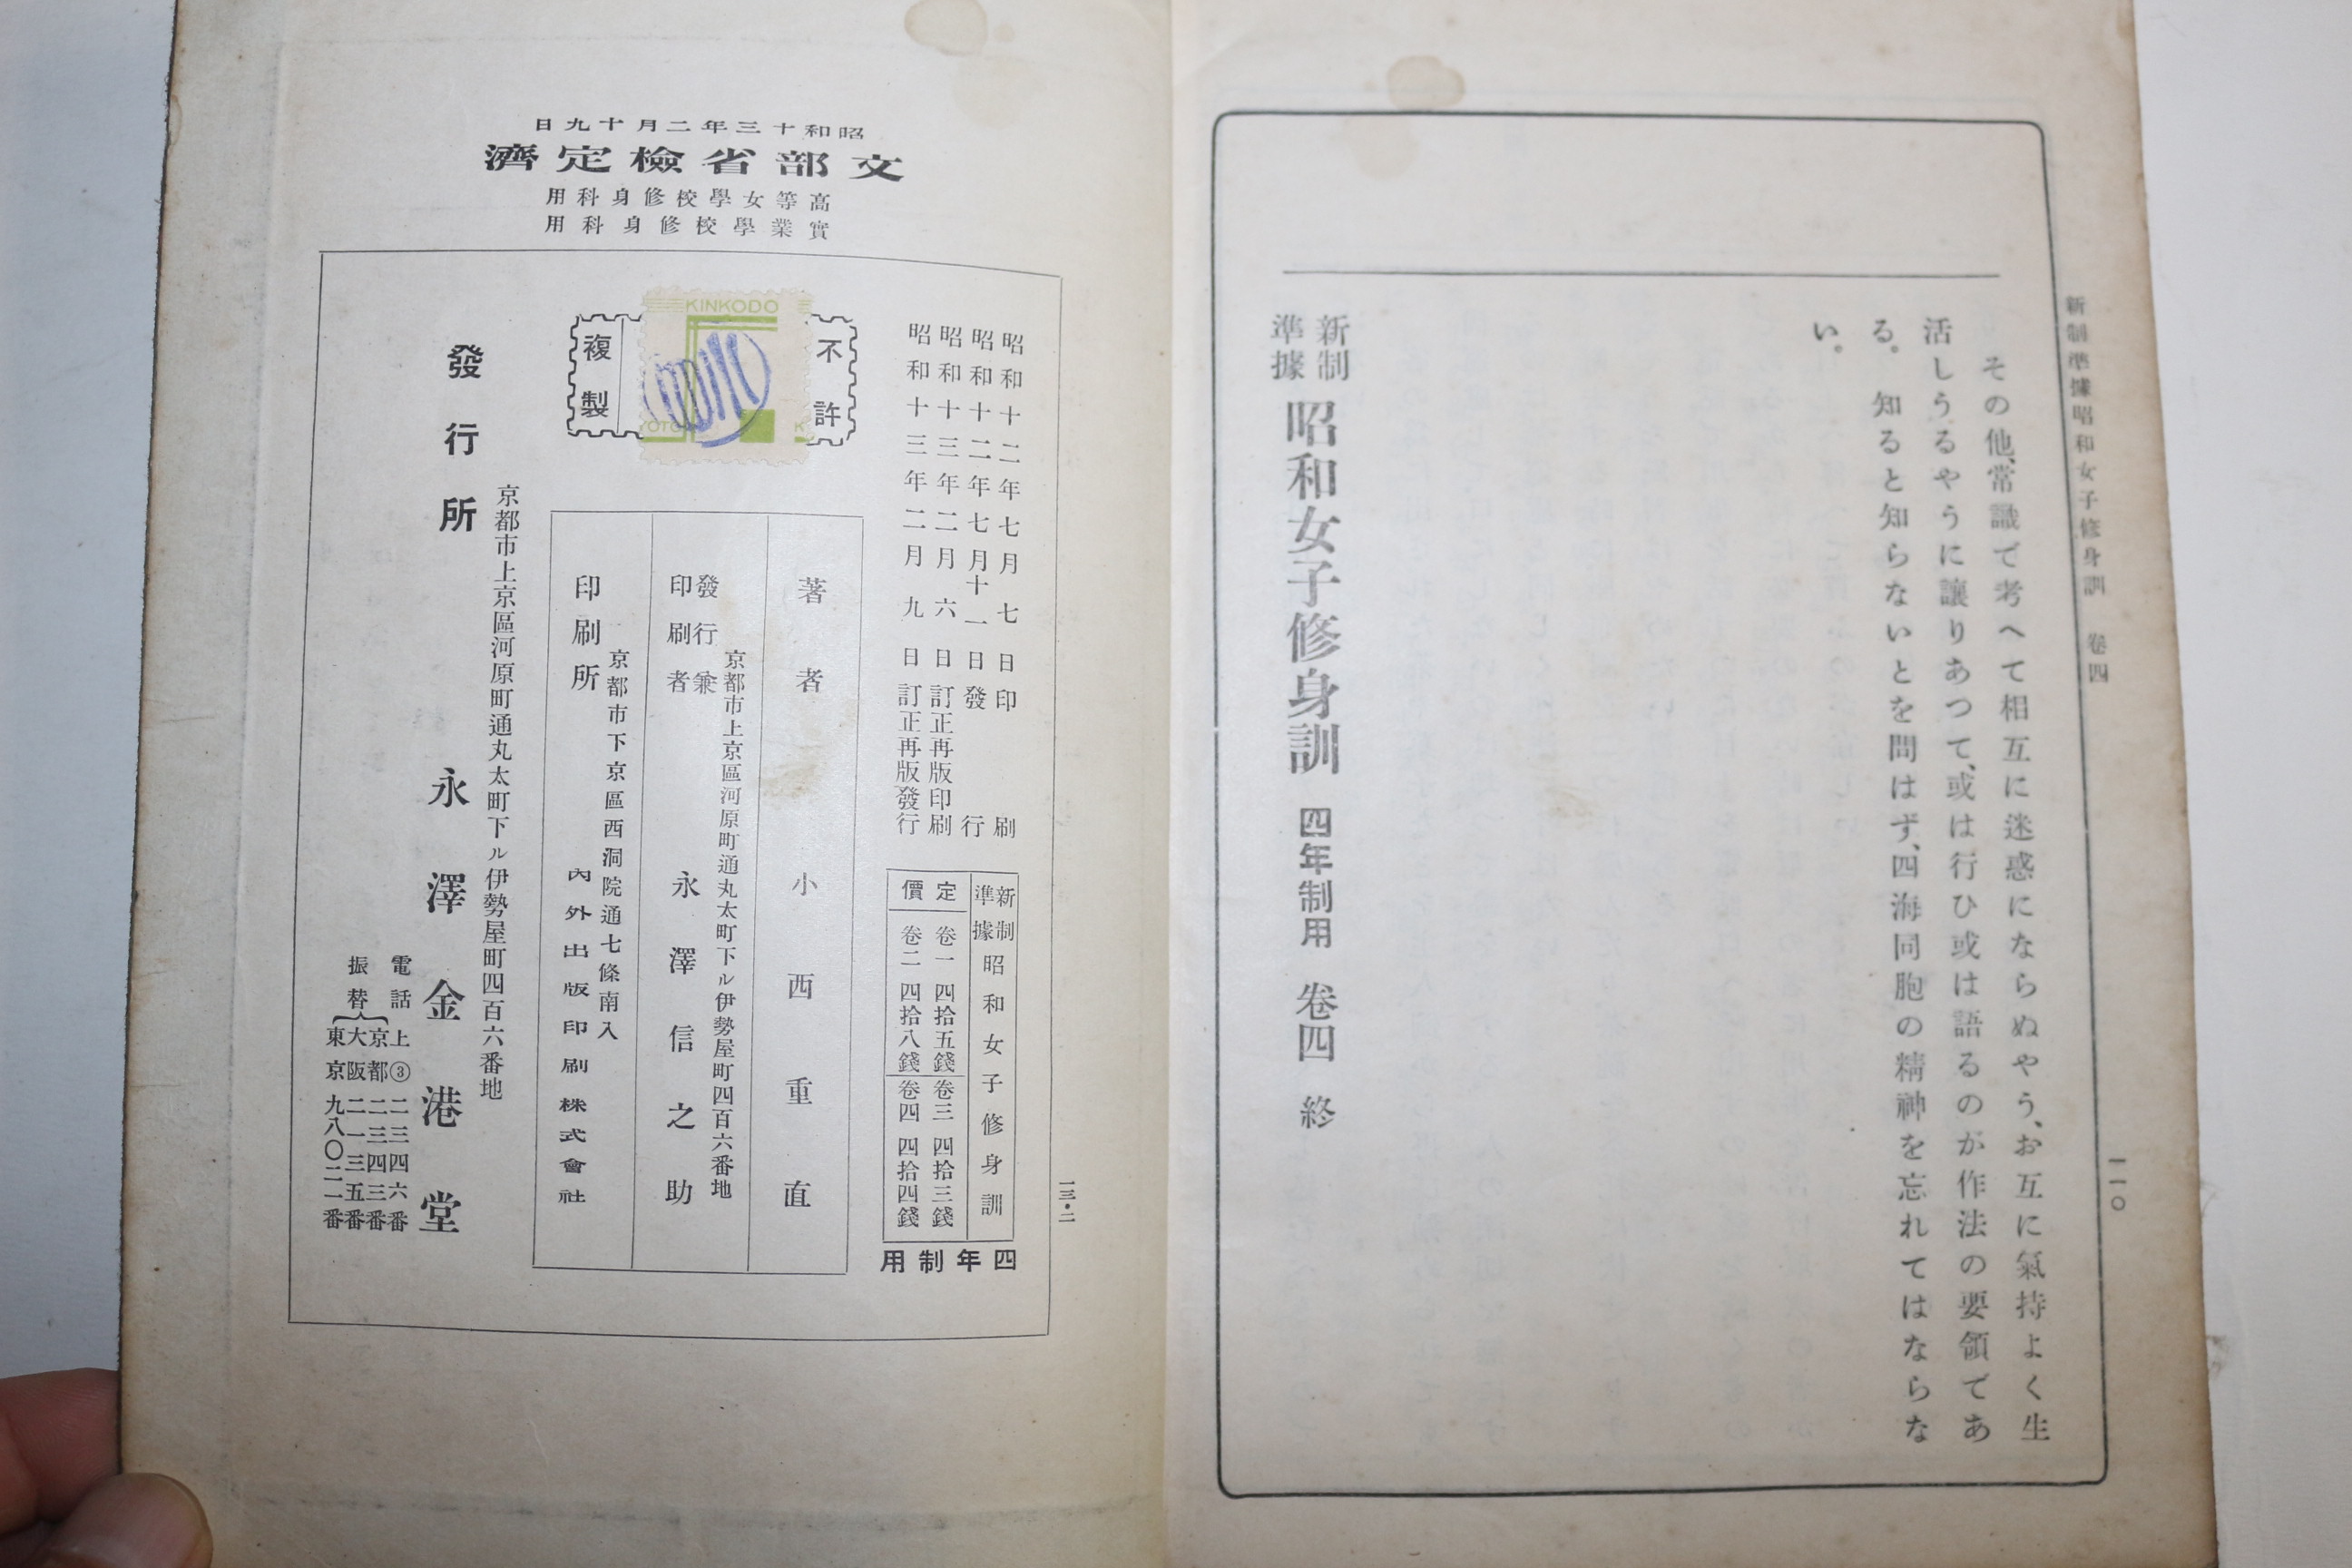 新制準據昭和女子修身訓　卷四
一一〇
その他、常識で考へて相互に迷惑にならぬやう、お互に氣持よく生
活しうるやうに讓りあつて、或は行ひ或は語るのが作法の要領であ
る。　知ると知らないとを問はず、四海同胞の精神を忘れてはならな
い。
新制
準據
昭和女子修身訓　四年制用　卷四　終
昭和十三年二月十九日
文部省檢定濟
高等女學校修身科用
實業學校修身科用
一三・二
昭和十二年七月七日印刷
昭和十二年七月十一日發行
昭和十三年二月六日訂正再版印刷
昭和十三年二月九日訂正再版發行
新制
準據
昭和女子修身訓
定價
卷一　四拾五錢
卷二　四拾八錢
卷三　四拾三錢
卷四　四拾四錢
四年制用
不許
複製
KINKODO
著者　小西重直
京都市上京區河原町通丸太町下ル伊勢屋町四百六番地
發行兼
印刷者
永澤信之助
京都市下京區西洞院通七條南入
印刷所　內外出版印刷株式會社
京都市上京區河原町通丸太町下ル伊勢屋町四百六番地
發行所　永澤金港堂
電話　上③二三四六番
振替
京都　二三四三番
大阪　二一三五番
東京　九八〇二一番